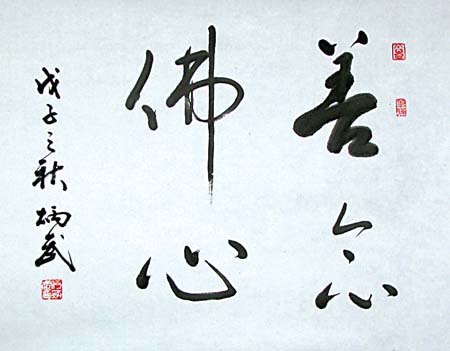 善念
佛心
戊子之秋 炳武